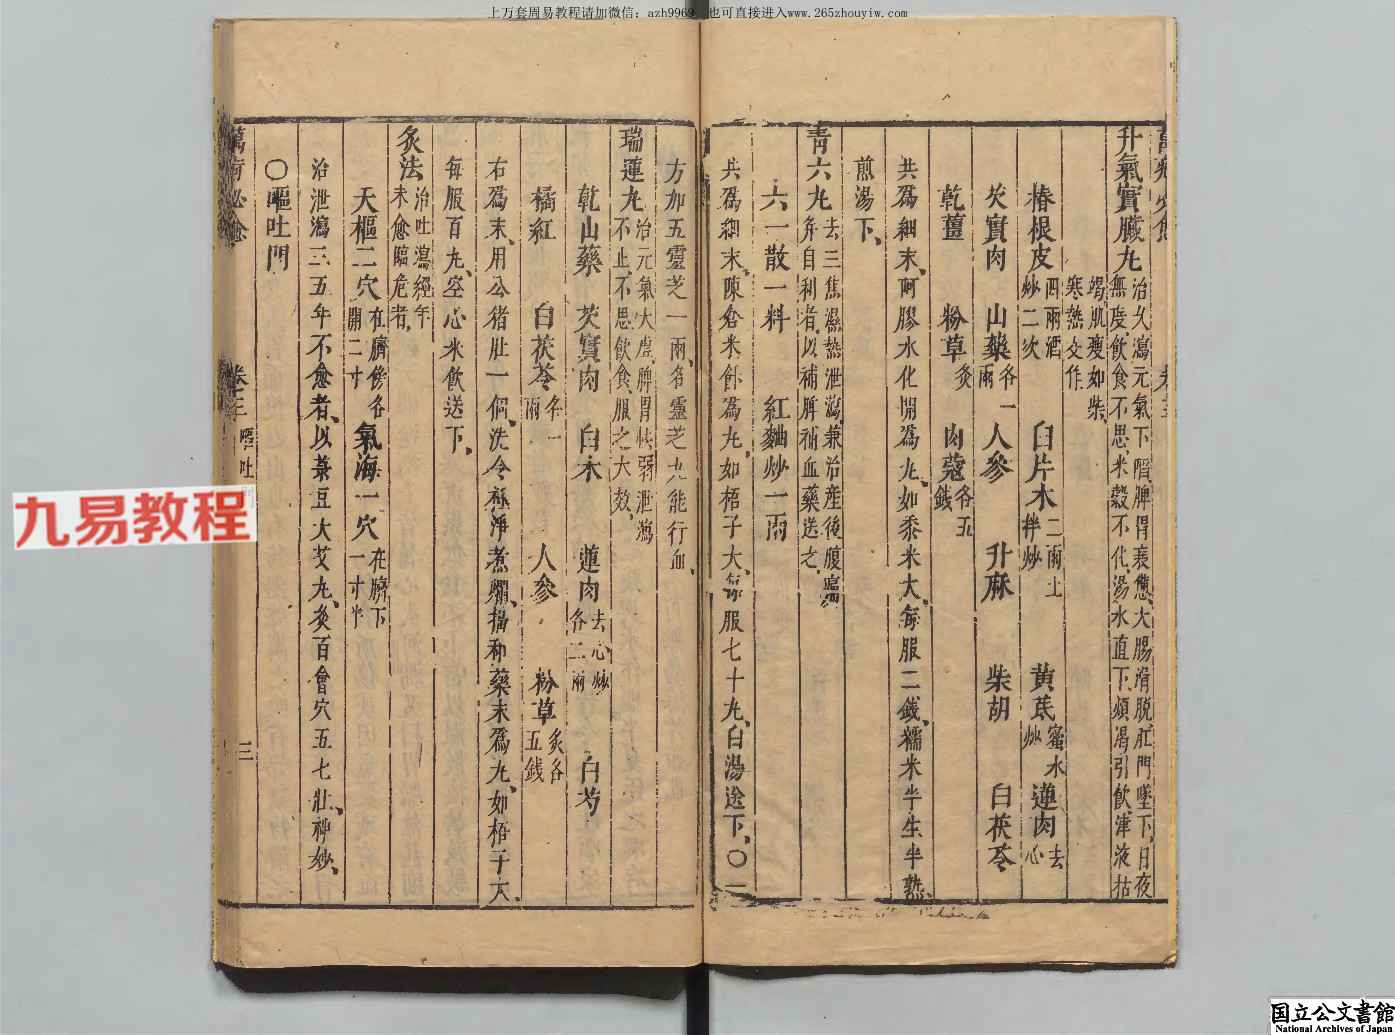 上万套周易教程请加微信：azh9969，也可直接进入www.265zhouyiw.com
升氣實臟丸
治久瀉元氣下陷脾胃衰憊大腸滑脫肛門墜下日夜
無度飲食不思米穀不化湯水直下煩渴引飲津液枯
竭肌瘦如柴
寒熱交作
椿根皮四兩酒炒二次 白片术二兩土拌炒 黃芪蜜水炒 蓮肉去心
芡實肉 山藥各一兩 人參 升麻 柴胡 白茯苓
乾薑 粉草炙 肉蔻各五錢
共爲細末阿膠水化開爲丸如黍米大每服二錢糯米半生半熟
煎湯下
青六丸去三焦濕熱泄瀉兼治産後腹痛
并自利者以補脾補血藥送之
六一散一料 紅麯炒一兩
共爲細末陳倉米飰爲丸如梧子大每服七十丸白湯送下〇一
方加五靈芝一兩名靈芝丸能行血
瑞蓮丸治元氣大虛脾胃怯弱泄瀉
不止不思飲食服之大效
乾山藥 芡實肉 白术 蓮肉去心炒各二兩 白芍
橘紅 白茯苓各一兩 人參 粉草炙各五錢
右爲末用公猪肚一個洗令極淨煮爛搗和藥末爲丸如梧子大
每服百丸空心米飲送下
炙法治吐瀉經年
未愈臨危者
天樞二穴在臍傍各開二寸 氣海一穴在臍下一寸半
治泄瀉三五年不愈者以菉豆大艾丸灸百會穴五七壯神妙
〇嘔吐門
卷三 嘔吐
三
九易教程
国立公文書館
National Archives of Japan